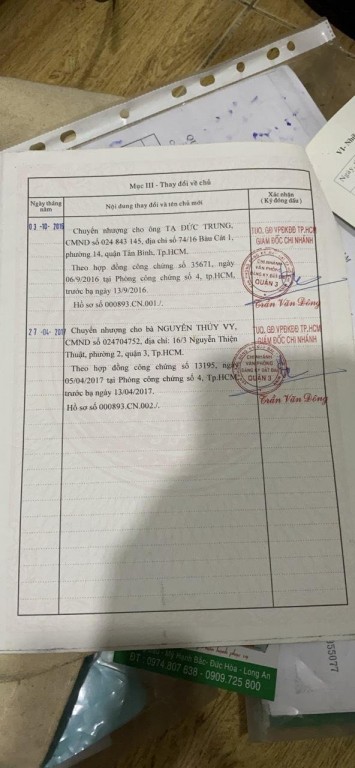 Mục III - Thay đổi về chủ
Ngày tháng năm
Nội dung thay đổi và tên chủ mới
Xác nhận
(Ký đóng dấu)
03-10-2016
Chuyển nhượng cho ông TẠ ĐỨC TRUNG,
CMND số 024 843 145, địa chỉ số 74/16 Bàu Cát 1,
phường 14, quận Tân Bình, Tp.HCM.
Theo hợp đồng công chứng số 35671, ngày
06/9/2016 tại Phòng công chứng số 4, tp.HCM,
trước bạ ngày 13/9/2016.
Hồ sơ số 000893.CN.001./.
TUQ. GĐ VPĐKĐĐ TP.HCM
GIÁM ĐỐC CHI NHÁNH
CHI NHÁNH
VĂN PHÒNG
ĐĂNG KÝ ĐẤT ĐAI
QUẬN 3
Trần Văn Đông
27-04-2017
Chuyển nhượng cho bà NGUYỄN THÚY VY,
CMND số 024704752, địa chỉ: 16/3 Nguyễn Thiện
Thuật, phường 2, quận 3, Tp.HCM.
Theo hợp đồng công chứng số 13195, ngày
05/04/2017 tại Phòng công chứng số 4, Tp.HCM,
trước bạ ngày 13/04/2017.
Hồ sơ số 000893.CN.002./.
TUQ. GĐ VPĐKĐĐ TP.HCM
GIÁM ĐỐC CHI NHÁNH
CHI NHÁNH
VĂN PHÒNG
ĐĂNG KÝ ĐẤT ĐAI
QUẬN 3
Trần Văn Đông
Mỹ Hạnh Bắc- Đức Hòa - Long An
ĐT : 0974.807 838 - 0909.725 800
55077